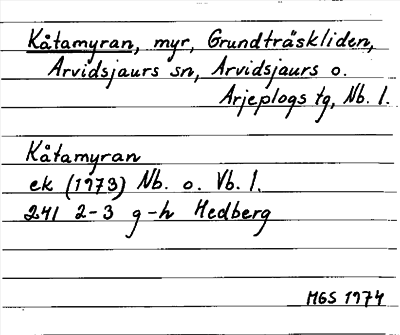 Kåtamyran, myr, Grundträskliden,
Arvidsjaurs sn, Arvidsjaurs o.
Arjeplogs tg, Nb. l.
Kåtamyran
ek (1973) Nb. o. Vb. l.
241 2-3 g-h Hedberg
MGS 1974